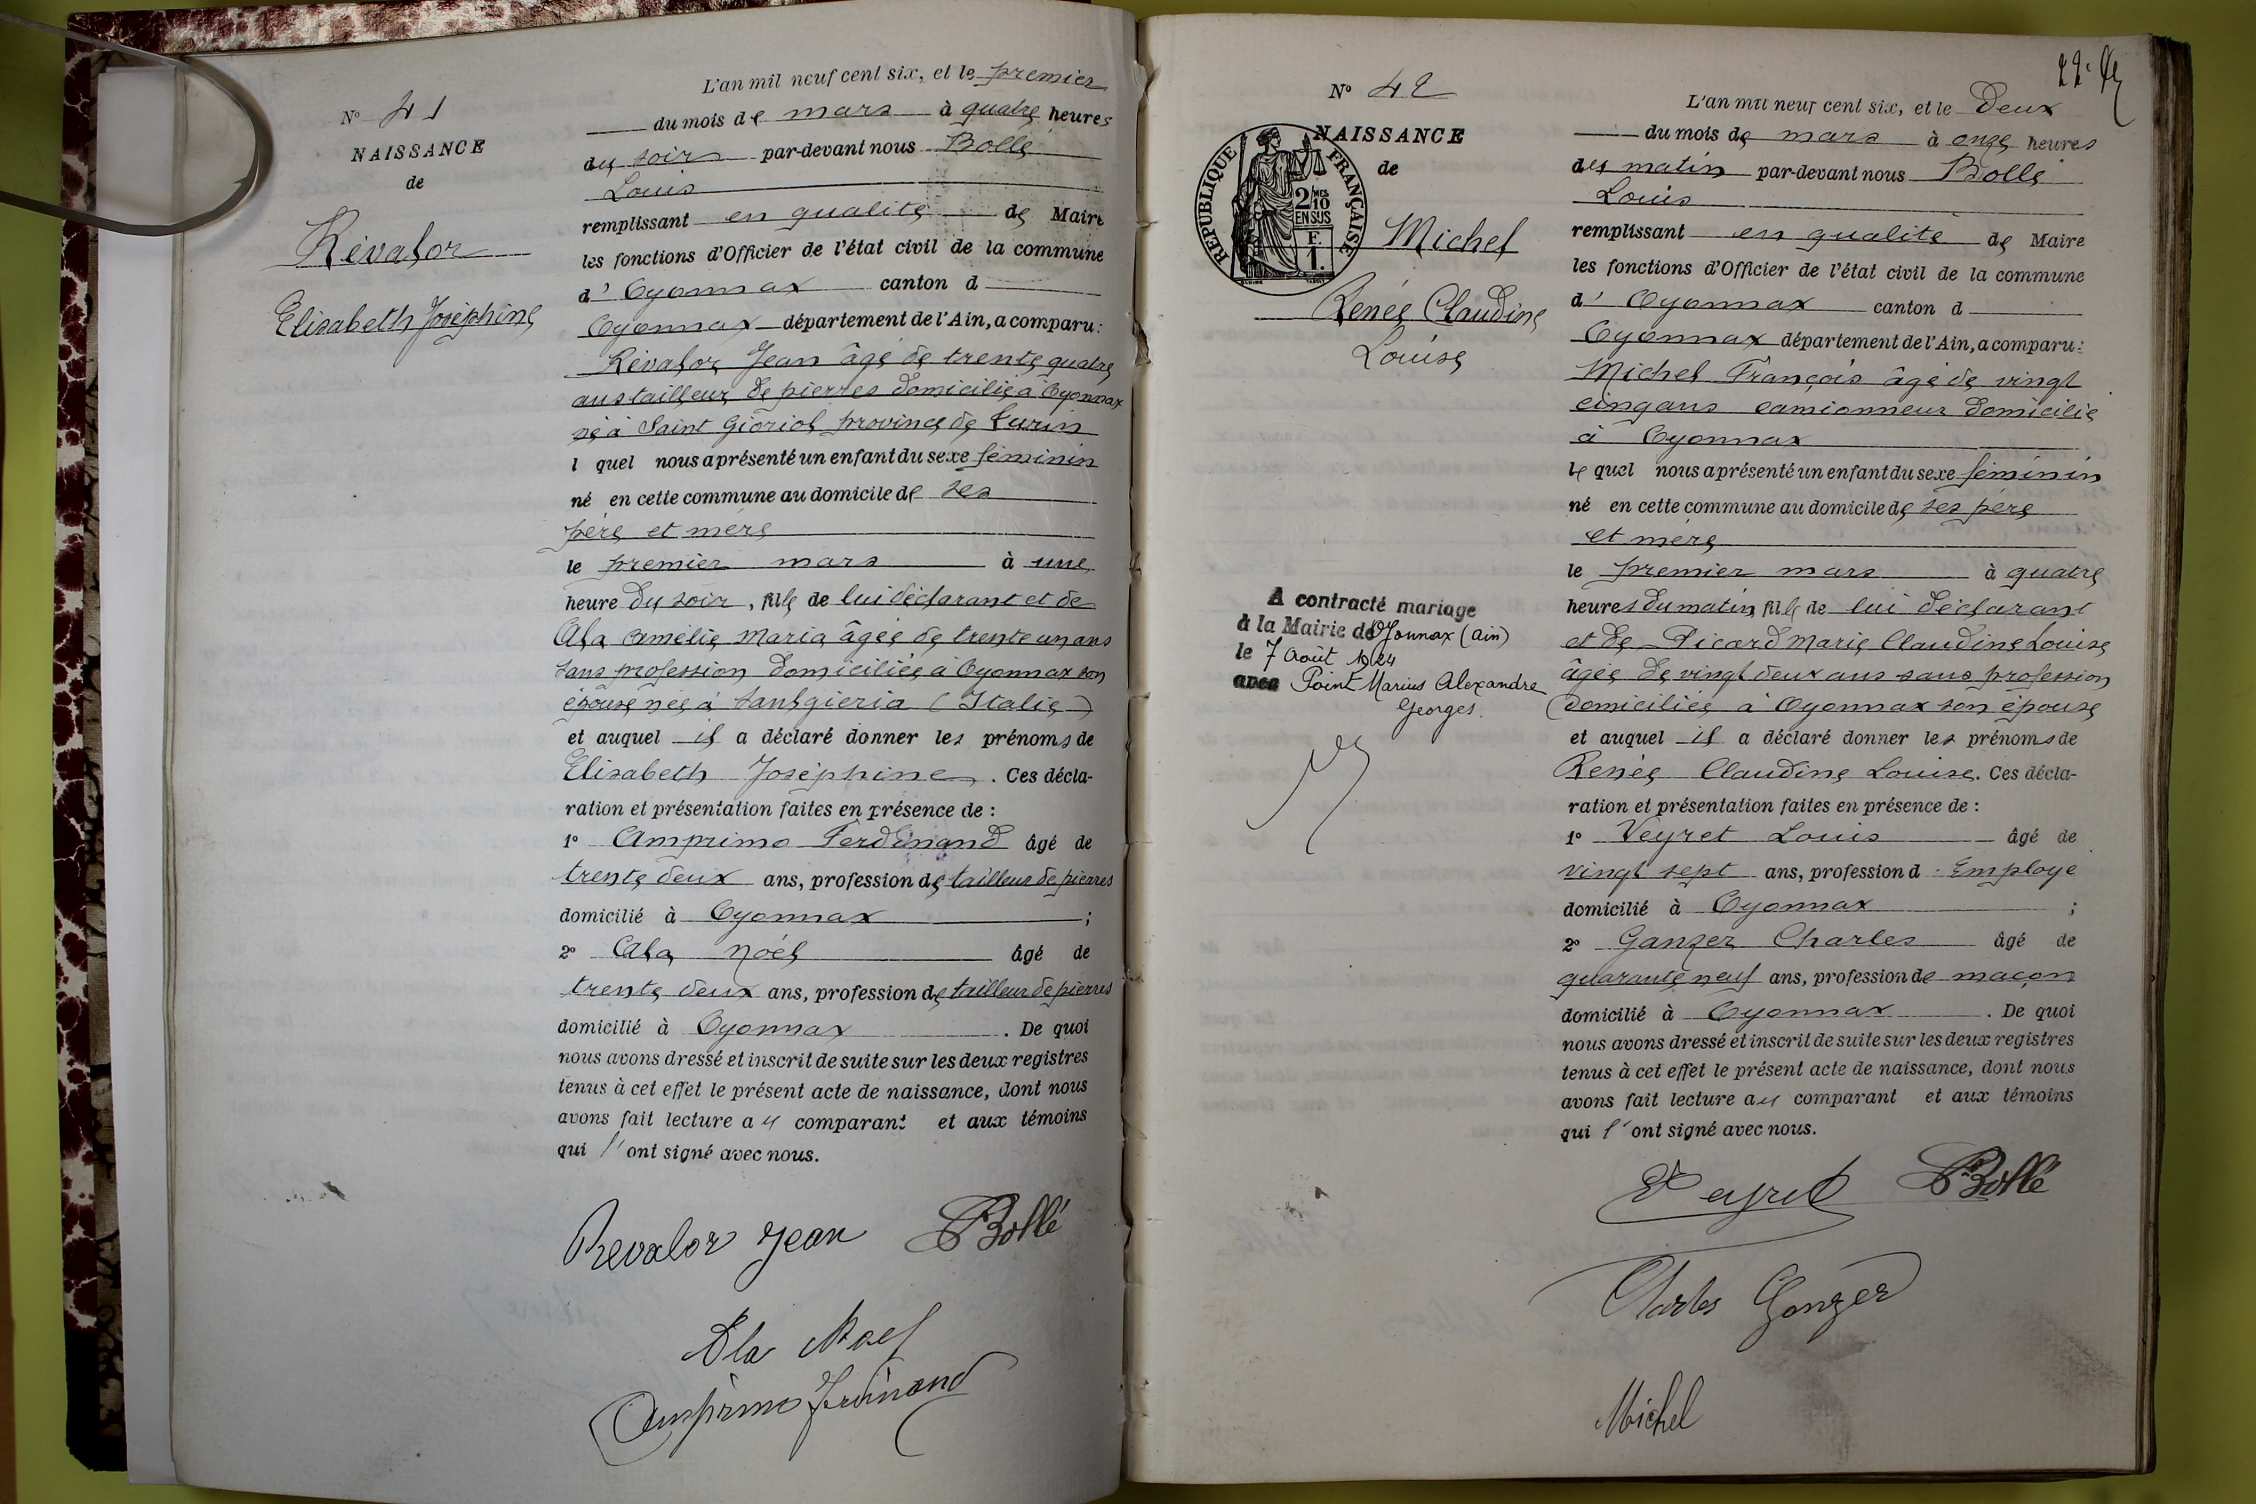 N° 41
NAISSANCE
de
Révalor
Elisabeth Joséphine
L'an mil neuf cent six, et le premier
du mois de mars à quatre heures
du soir par-devant nous Bollé
Louis
remplissant en qualité de Maire
les fonctions d'Officier de l'état civil de la commune
d'Oyonnax canton d
Oyonnax département de l'Ain, a comparu:
Révalor Jean âgé de trente quatre
ans tailleur de pierres domicilié à Oyonnax
né à Saint Gioriol province de Turin
l quel nous a présenté un enfant du sexe féminin
né en cette commune au domicile de ses
père et mère
le premier mars à une
heure du soir, fille de lui déclarant et de
Ala Amélie Maria âgée de trente un ans
sans profession domiciliée à Oyonnax son
épouse née à (Italie)
et auquel il a déclaré donner les prénoms de
Elisabeth Joséphine. Ces décla-
ration et présentation faites en présence de :
1° Amprimo Ferdinand âgé de
trente deux ans, profession de tailleur de pierres
domicilié à Oyonnax ;
2° Ala Noël âgé de
trente deux ans, profession de tailleur de pierres
domicilié à Oyonnax . De quoi
nous avons dressé et inscrit de suite sur les deux registres
tenus à cet effet le présent acte de naissance, dont nous
avons fait lecture au comparant et aux témoins
qui l'ont signé avec nous.
Revalor Jean Bollé
Ala Noel
Amprimo Ferdinand
22e
N° 42
NAISSANCE
de
RÉPUBLIQUE FRANÇAISE
2/10 MES
EN SUS
F.
1.
Michel
Renée Claudine
Louise
A contracté mariage
à la Mairie de Oyonnax (Ain)
le 7 Août 1924
avec Point Marius Alexandre
Georges.
L'an mil neuf cent six, et le Deux
du mois de mars à onze heures
du matin par-devant nous Bollé
Louis
remplissant en qualité de Maire
les fonctions d'Officier de l'état civil de la commune
d'Oyonnax canton d
Oyonnax département de l'Ain, a comparu:
Michel François âgé de vingt
cinq ans camionneur domicilié
à Oyonnax
le quel nous a présenté un enfant du sexe féminin
né en cette commune au domicile de ses père
et mère
le premier mars à quatre
heures du matin, fille de lui déclarant
et de Picard Marie Claudine Louise
âgée de vingt deux ans sans profession
domiciliée à Oyonnax son épouse
et auquel il a déclaré donner les prénoms de
Renée Claudine Louise. Ces décla-
ration et présentation faites en présence de :
1° Veyret Louis âgé de
vingt sept ans, profession d'Employé
domicilié à Oyonnax ;
2° Ganzer Charles âgé de
quarante neuf ans, profession de maçon
domicilié à Oyonnax . De quoi
nous avons dressé et inscrit de suite sur les deux registres
tenus à cet effet le présent acte de naissance, dont nous
avons fait lecture au comparant et aux témoins
qui l'ont signé avec nous.
Veyret Bollé
Charles Ganzer
Michel